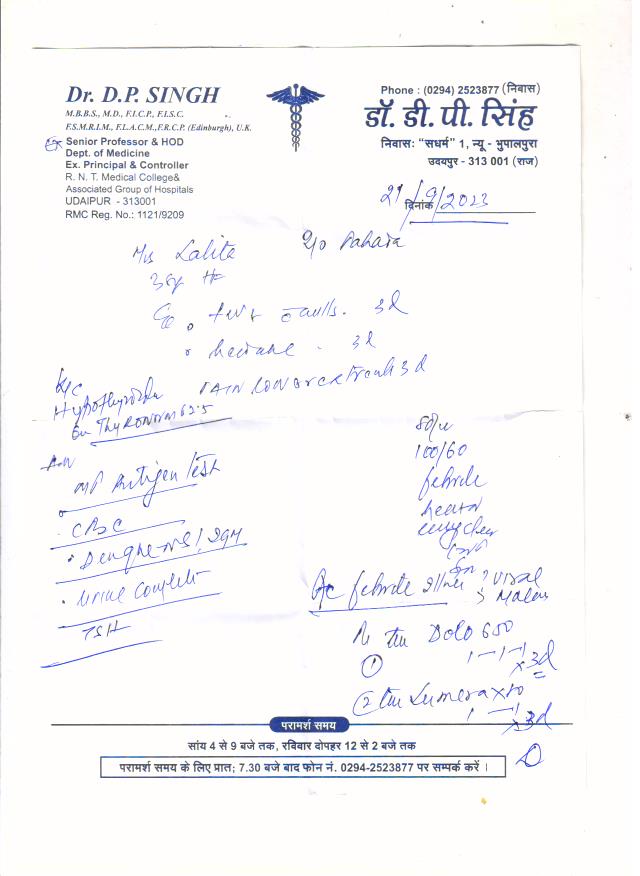 Dr. D.P. SINGH
M.B.B.S., M.D., F.I.C.P., F.I.S.C.
F.S.M.R.I.M., F.L.A.C.M., F.R.C.P. (Edinburgh), U.K.
Ex Senior Professor & HOD
Dept. of Medicine
Ex. Principal & Controller
R. N. T. Medical College&
Associated Group of Hospitals
UDAIPUR - 313001
RMC Reg. No.: 1121/9209
Phone : (0294) 2523877 (निवास)
डॉ. डी. पी. सिंह
निवासः "सधर्म" 1, न्यू - भुपालपुरा
उदयपुर - 313 001 (राज)
दिनांक 21/9/2023
Mrs Lalita
3d
3d
3d
K/C
Hypothyroidism
On THYRONORM 62.5
Adv
MP Antigen Test
CBC
Dengue NS1, IgM
Urine Complete
TSH
80/m
100/60
febrile
Ac febrile illness ? Viral
? Malaria
Rx Tab Dolo 650
① 1-1-1 x 3d
② Tab Lumerax 80
1 - 1 x 3d
परामर्श समय
सांय 4 से 9 बजे तक, रविवार दोपहर 12 से 2 बजे तक
परामर्श समय के लिए प्रात; 7.30 बजे बाद फोन नं. 0294-2523877 पर सम्पर्क करें ।